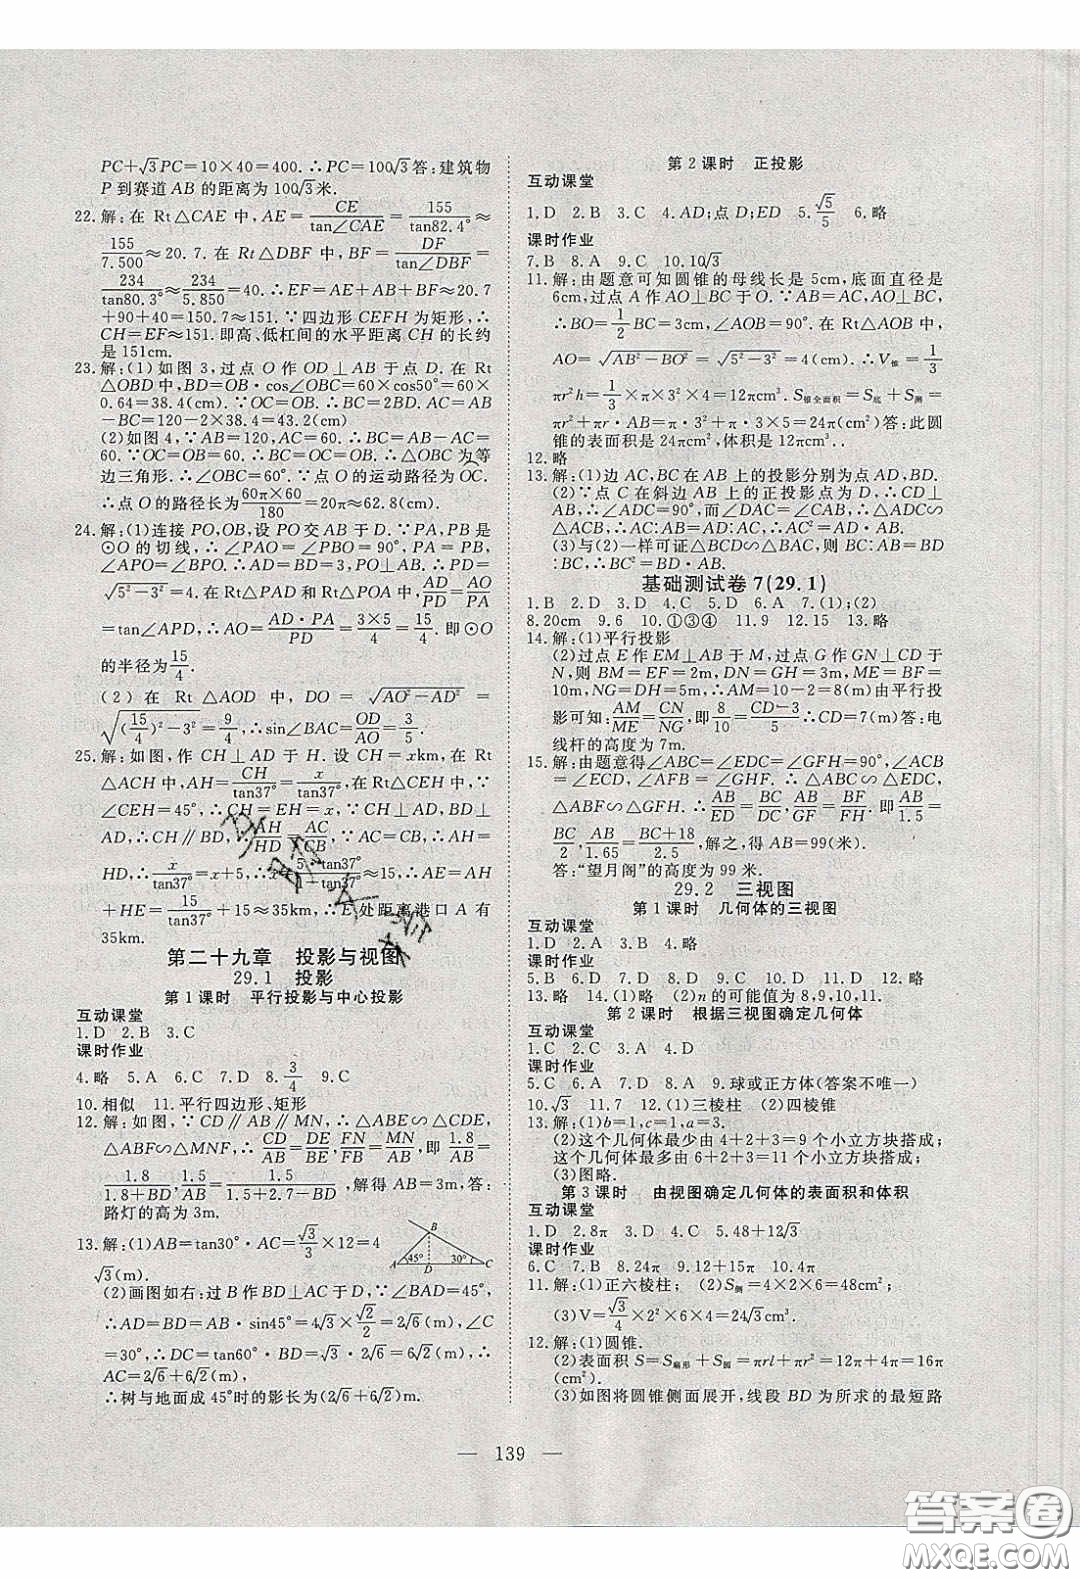 PC+√3PC=10×40=400.∴PC=100√3答:建筑物
P到赛道AB的距离为100√3米.
22.解:在Rt△CAE中,AE=CE/tan∠CAE=155/tan82.4°≈
155/7.500≈20.7.在Rt△DBF中,BF=DF/tan∠DBF=
234/tan80.3°≈234/5.850=40.∴EF=AE+AB+BF≈20.7
+90+40=150.7≈151.∵四边形CEFH为矩形,∴
CH=EF≈151.即高、低杠间的水平距离CH的长约
是151cm.
23.解:(1)如图3,过点O作OD⊥AB于点D.在Rt
△OBD中,BD=OB·cos∠OBC=60×cos50°≈60×
0.64=38.4(cm).∵OC=OB,∴BC=2BD.AC=AB-
BC=120-2×38.4=43.2(cm)
(2)如图4,∵AB=120,AC=60.∴BC=AB-AC=
60.∵OC=OB=60.∴BC=OC=OB.∴△OBC为等
边三角形.∴∠OBC=60°∵点O的运动路径为OC.
∴点O的路径长为60π×60/180=20π≈62.8(cm)
24.解:(1)连接PO,OB,设PO交AB于D.∵PA,PB是
⊙O的切线,∴∠PAO=∠PBO=90°,PA=PB,
∠APO=∠BPO.∴AD=BD=3,PO⊥AB.∴PD=
√5²-3²=4.在Rt△PAD和Rt△POA中,AD/PD=AO/PA
=tan∠APD,∴AO=AD·PA/PD=3×5/4=15/4.即⊙O
的半径为15/4.
(2)在Rt△AOD中,DO=√AO²-AD²=
√(15/4)²-3²=9/4,∴sin∠BAC=OD/AO=3/5.
25.解:如图,作CH⊥AD于H.设CH=xkm,在Rt
△ACH中,AH=CH/tan37°=x/tan37°,在Rt△CEH中,∵
∠CEH=45°,∴CH=EH=x,∵CH⊥AD,BD⊥
AD,∴CH∥BD,∴AH/HD=AC/CB,∵AC=CB,∴AH=
HD,∴x/tan37°=x+5,∴x=5·tan37°/1-tan37°≈15,∴AE=AH
+HE=15/tan37°+15≈35km,∴E处距离港口A有
35km.
第二十九章 投影与视图
29.1 投影
第1课时 平行投影与中心投影
互动课堂
1.D 2.B 3.C
课时作业
4.略 5.A 6.C 7.D 8.3/4 9.C
10.相似 11.平行四边形、矩形
12.解:如图,∵CD∥AB∥MN,∴△ABE∽△CDE,
△ABF∽△MNF,∴CD/AB=DE/BE,FN/FB=MN/AB,即1.8/AB=
1.8/1.8+BD,1.5/AB=1.5/1.5+2.7-BD,解得AB=3m,答:
路灯的高为3m.
13.解:(1)AB=tan30°·AC=√3/3×12=4
√3(m).
(2)画图如右:过B作BD⊥AC于D,∵∠BAD=45°,
∴AD=BD=AB·sin45°=4√3×√2/2=2√6(m),∠C
=30°,∴DC=tan60°·BD=√3×2√6=6√2(m),∴
AC=2√6+6√2(m).
∴树与地面成45°时的影长为(2√6+6√2)m.
B
45°
30°
A D C
第2课时 正投影
互动课堂
1.D 2.B 3.C 4.AD;点D;ED 5.√5/5 6.略
课时作业
7.B 8.A 9.C 10.10√3
11.解:由题意可知圆锥的母线长是5cm,底面直径是
6cm,过点A作AO⊥BC于O.∵AB=AC,AO⊥BC,
∴BO=1/2BC=3cm,∠AOB=90°.在Rt△AOB中,
AO=√AB²-BO²=√5²-3²=4(cm).∴V锥=1/3
πr²h=1/3×π×3²×4=12πcm³.S锥全面积=S底+S侧=
πr²+πr·AB=π·3²+π·3×5=24πcm²)答:此圆
锥的表面积是24πcm²,体积是12πcm³..
12.略
13.解:(1)边AC,BC在AB上的投影分别为点AD,BD.
(2)∵点C在斜边AB上的正投影点为D,∴CD⊥
AB,∴∠ADC=90°,而∠DAC=∠CAB,∴△ADC∽
△ACB,∴AC:AB=AD:AC,∴AC²=AD·AB.
(3)与(2)一样可证△BCD∽△BAC,则BC:AB=BD
:BC,∴BC²=AB·BD.
基础测试卷7(29.1)
1.B 2.D 3.A 4.C 5.D 6.A 7.(1);(2)
8.20cm 9.6 10.①③④ 11.9 12.15 13.略
14.解:(1)平行投影
(2)过点E作EM⊥AB于M,过点G作GN⊥CD于
N,则BM=EF=2m,DN=GH=3m,ME=BF=
10m,NG=DH=5m,∴AM=10-2=8(m)由平行投
影可知:AM/ME=CN/NG,即8/10=CD-3/5∴CD=7(m)答:电
线杆的高度为7m.
15.解:由题意得∠ABC=∠EDC=∠GFH=90°,∠ACB
=∠ECD,∠AFB=∠GHF.∴△ABC∽△EDC,
△ABF∽△GFH.∴AB/ED=BC/DC,AB/GF=BF/FH.即AB/1.5=
BC/2,AB/1.65=BC+18/2.5,解之,得AB=99(米).
答:“望月阁”的高度为99米.
29.2 三视图
第1课时 几何体的三视图
互动课堂
1.D 2.A 3.C 4.D
课时作业
5.B 6.D 7.D 8.C 9.D 10.B 11.D 12.略
13.略 14.(1)略 (2)n的可能值为8,9,10,11.
第2课时 根据三视图确定几何体
互动课堂
1.C 2.C 3.A 4.D
课时作业
5.C 6.A 7.D 8.A 9.球或正方体(答案不唯一)
10.√3 11.7 12.(1)三棱柱 (2)四棱锥
13.解:(1)b=1,c=1,a=3.
(2)这个几何体最少由4+2+3=9个小立方块搭成;
这个几何体最多由6+2+3=11个小立方块搭成;
(3)图略.
第3课时 由视图确定几何体的表面积和体积
互动课堂
1.D 2.8π 3.D 4.C 5.48+12√3
课时作业
6.C 7.B 8.24π 9.12+15π 10.4π
11.解:(1)正六棱柱; (2)S侧=4×2×6=48cm²;
(3)V=√3/4×2²×6×4=24√3cm³.
12.解:(1)圆锥.
(2)表面积S=S扇形+S圆=πrl+πr²=12π+4π=16π
(cm²).
(3)如图将圆锥侧面展开,线段BD为所求的最短路
— 139 —
答案圈
MXQE.COM